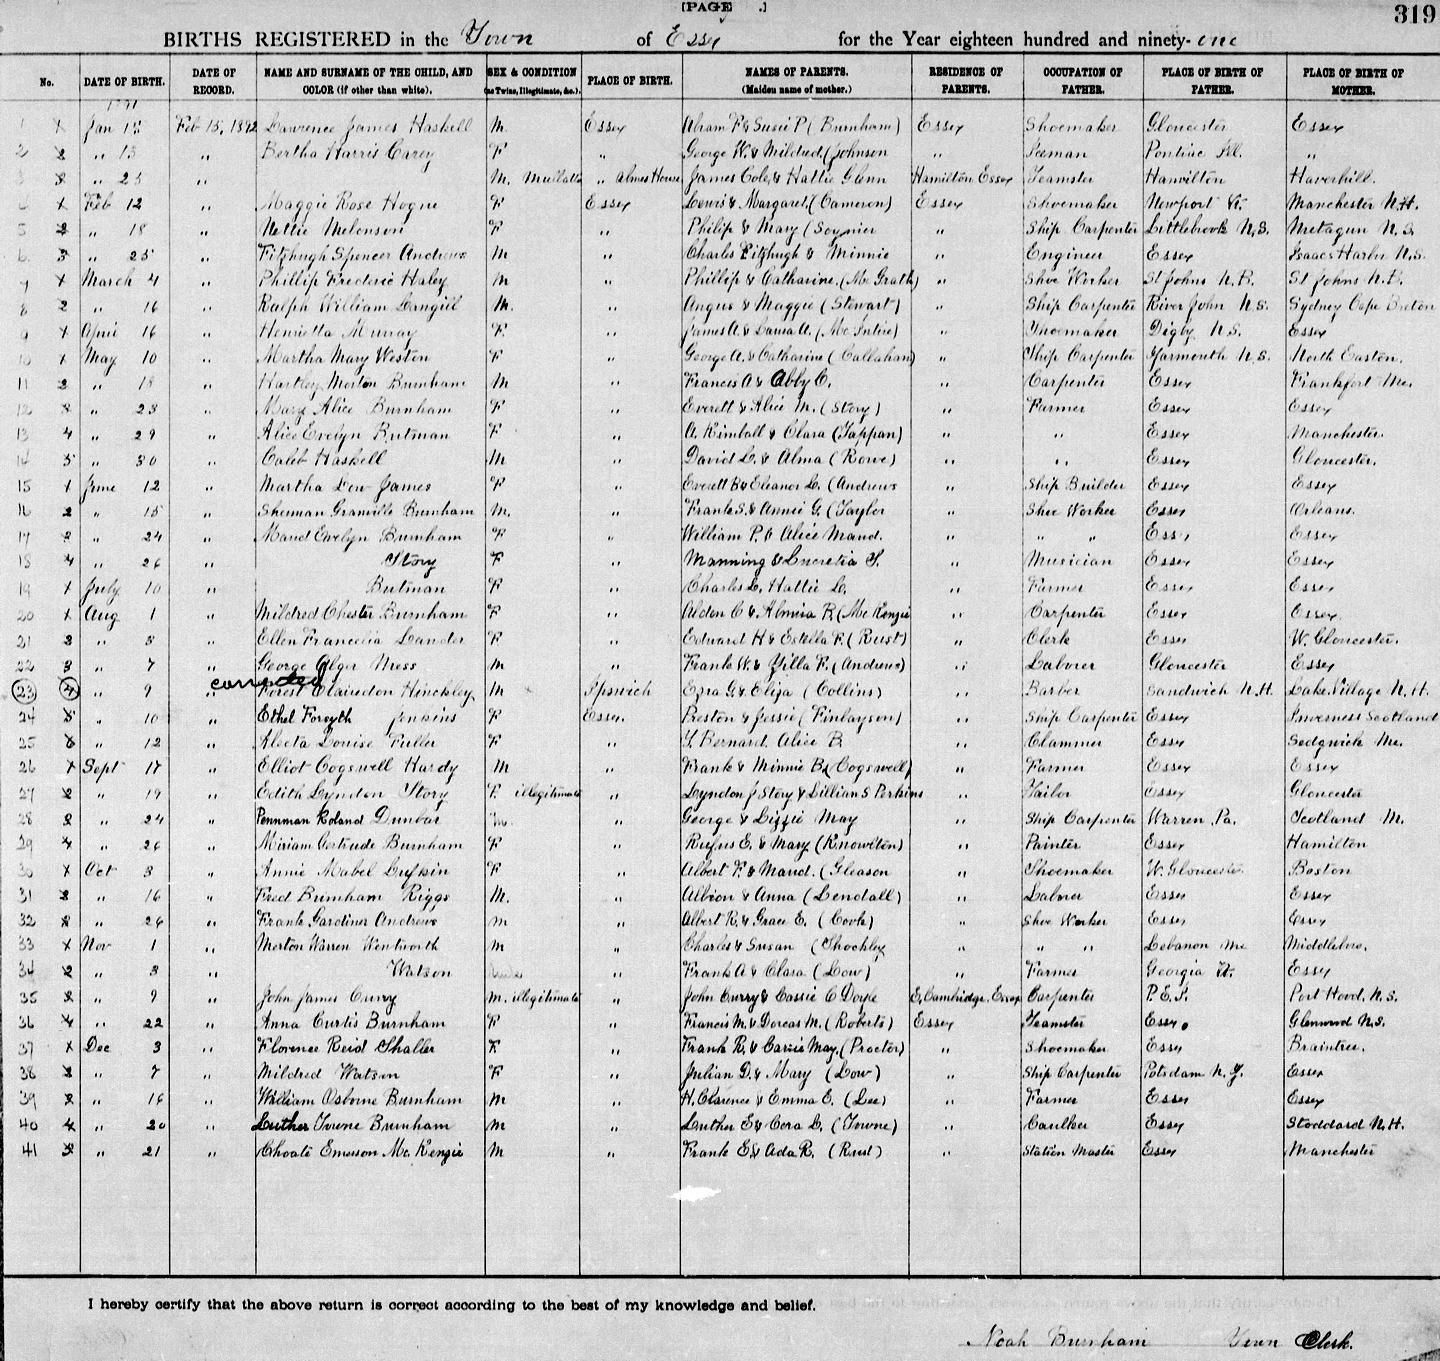 [PAGE .]
319
BIRTHS REGISTERED in the Town of Essex for the Year eighteen hundred and ninety-one
No. DATE OF BIRTH. DATE OF RECORD. NAME AND SURNAME OF THE CHILD, AND COLOR (if other than white). SEX & CONDITION (as Twins, Illegitimate, &c.) PLACE OF BIRTH. NAMES OF PARENTS. (Maiden name of mother.) RESIDENCE OF PARENTS. OCCUPATION OF FATHER. PLACE OF BIRTH OF FATHER. PLACE OF BIRTH OF MOTHER.
1891
1 x Jan 12 Feb 15, 1892 Lawrence James Haskell M. Essex F & Susie P (Burnham) Essex Shoemaker Gloucester Essex
2 2 " 13 " Bertha Harris Carey F " George W. & Mildred (Johnson " Iceman Pontiac Ill. "
3 3 " 25 " M. Mullatto " Almes House James Cole & Hattie Glenn Hamilton Essex Teamster Hamilton Haverhill.
4 x Feb 12 " Maggie Rose Hogue F Essex Lewis & Margaret (Cameron) Essex Shoemaker Newport Manchester N.H.
5 2 " 18 " Nettie Melonson F " Philip & Mary ( " Ship Carpenter Littlebrook N.S. Metagun N.S.
6 3 " 25 " Fitzhugh Spencer Andrews M " Charles Fitzhugh & Minnie " Engineer Essex Isaacs Harbor N.S.
7 x March 4 " Phillip Frederic Haley M " Phillip & Catharine (Mc Grath) " Shoe Worker St Johns N.B. St Johns N.B.
8 2 " 16 " Ralph William Langill M. " Angus & Maggie (Stewart) " Ship Carpenter River John N.S. Sydney Cape Breton
9 x April 16 " Henrietta Murray F. " James A. & (Mc Intire) " Shoemaker Digby N.S. Essex
10 x May 10 " Martha Mary Weston F " George A. & Catharine (Callahan) " Ship Carpenter Yarmouth N.S. North Easton.
11 2 " 18 " Hartley Morton Burnham M " Francis A & Abby C. " Carpenter Essex Frankfort Me.
12 3 " 23 " Mary Alice Burnham F " Everett & Alice M. (Story) " Farmer Essex Essex
13 4 " 29 " Alice Evelyn Butman F " A. Kimball & Clara (Tappan) " " Essex Manchester.
14 5 " 30 " Caleb Haskell M " David L. & Alma (Rowe) " " Essex Gloucester.
15 x June 12 " Martha Low James F " Everett B & Eleanor L. (Andrews " Ship Builder Essex Essex
16 2 " 15 " Sherman Granville Burnham M. " Frank S. & Annie G. (Taylor " Shoe Worker Essex Orleans.
17 3 " 24 " Maud Evelyn Burnham F " William P. & Alice Maud. " " " Essex Essex
18 4 " 26 " Story F " Manning & Lucretia S. " Musician Essex Essex
19 x July 10 " Butman F " Charles L. Hattie L. " Farmer Essex Essex
20 x Aug 1 " Mildred Chester Burnham F " Alden C & Almira P. (Mc Kenzie " Carpenter Essex Essex.
21 2 " 5 " Ellen Francelia Lander F " Edward H & Estella F. (Rust) " Clerk Essex W. Gloucester.
22 3 " 7 " George Alger Mess M " Frank W. & Zilla F. (Andrews) " Laborer Gloucester Essex
corrected
23 4 " 9 " Forest Clairedon Hinckley M Ipswich Ezra G. & Eliza (Collins) " Barber Sandwich N.H. Lake Village N.H.
24 5 " 10 " Ethel Forsyth Jenkins F Essex. Preston & Jessie (Finlayson) " Ship Carpenter Essex Inverness Scotland
25 6 " 12 " Alecta Louise Fuller F " Y. Bernard. Alice B. " Clammer Essex Sedgwick Me.
26 x Sept 17 " Elliot Cogswell Hardy M " Frank & Minnie B. (Cogswell) " Farmer Essex Essex
27 2 " 19 " Edith Lyndon Story F. illegitimate " Lyndon J Story & Lillian S Perkins " Tailor Essex Gloucester
28 3 " 24 " Pennman Roland Dunbar M. " George & Lizzie May " Ship Carpenter Warren Pa. Scotland M.
29 4 " 26 " Miriam Gertrude Burnham F " Rufus E. & Mary (Knowlton) " Painter Essex Hamilton
30 x Oct 3 " Annie Mabel Lufkin F " Albert F. & Maud. (Gleason " Shoemaker W. Gloucester. Boston
31 2 " 16 " Fred Burnham Riggs M. " Albion & Anna (Lendall) " Laborer Essex Essex
32 3 " 26 " Frank Gardiner Andrews M " Albert R. & Grace E. (Cook) " Shoe Worker Essex Essex
33 x Nov 1 " Merton Warren Wentworth M " Charles & Susan (Shockley " " " Lebanon Me Middleboro.
34 2 " 3 " Watson " Frank A & Clara (Low) " Farmer Georgia Vt. Essex
35 3 " 9 " John James Curry M. illegitimate " John Curry & Cassie C Doyle E. Cambridge. Essex Carpenter P.E.I. Port Hood, N.S.
36 4 " 22 " Anna Curtis Burnham F " Francis M. & Dorcas M. (Roberts) Essex Teamster Essex Glenwood N.S.
37 x Dec 3 " Florence Reid Shaller F " Frank R. & Carrie May. (Procter) " Shoemaker Essex Braintree.
38 2 " 7 " Mildred Watson F " Julian D. & Mary (Low) " Ship Carpenter Potsdam N.Y. Essex
39 3 " 16 " William Osborne Burnham M " H. Clarence & Emma E. (Lee) " Farmer Essex Essex
40 4 " 20 " Luther Towne Burnham M " Luther E & Cora L. (Towne) " Caulker Essex Stoddard N.H.
41 5 " 21 " Choate Emerson Mc Kenzie M " Frank E. & Ada R. (Rust) " Station Master Essex Manchester
I hereby certify that the above return is correct according to the best of my knowledge and belief.
Noah Burnham Town Clerk.